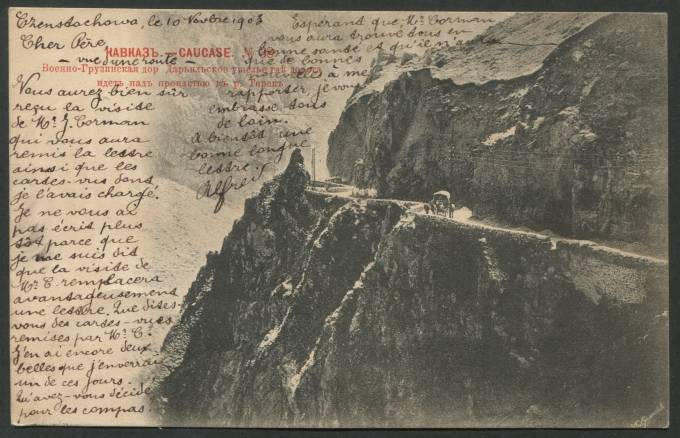 Czenstochowa, le 10 Novbre 1903
Cher Père,
КАВКАЗЪ.—CAUCASE.
— vue d'une route —
Военно-Грузинская дор Дарьяльское ущелье
идетъ надъ пропастью къ р. Терекъ
Vous aurez bien sûr
reçu la visite
de Mr. J. Corman
qui vous aura
remis la lettre
ainsi que les
cartes-vues dont
je l'avais chargé.
Je ne vous ai
pas écrit plus
tôt parce que
je me suis dit
que la visite de
Mr. C. remplacera
avantageusement
une lettre. Que dites-
vous des cartes-vues
remises par Mr. C.
J'en ai encore deux
belles que j'enverrai
un de ces jours.
Qu'avez-vous décidé
pour les compas
Espérant que Mr. Corman
vous aura trouvé tous en
bonne santé et qu'il n'aura
que de bonnes
nouvelles à me
rapporter, je vous
embrasse tous
de loin.
À bientôt une
bonne longue
lettre.
Alfred